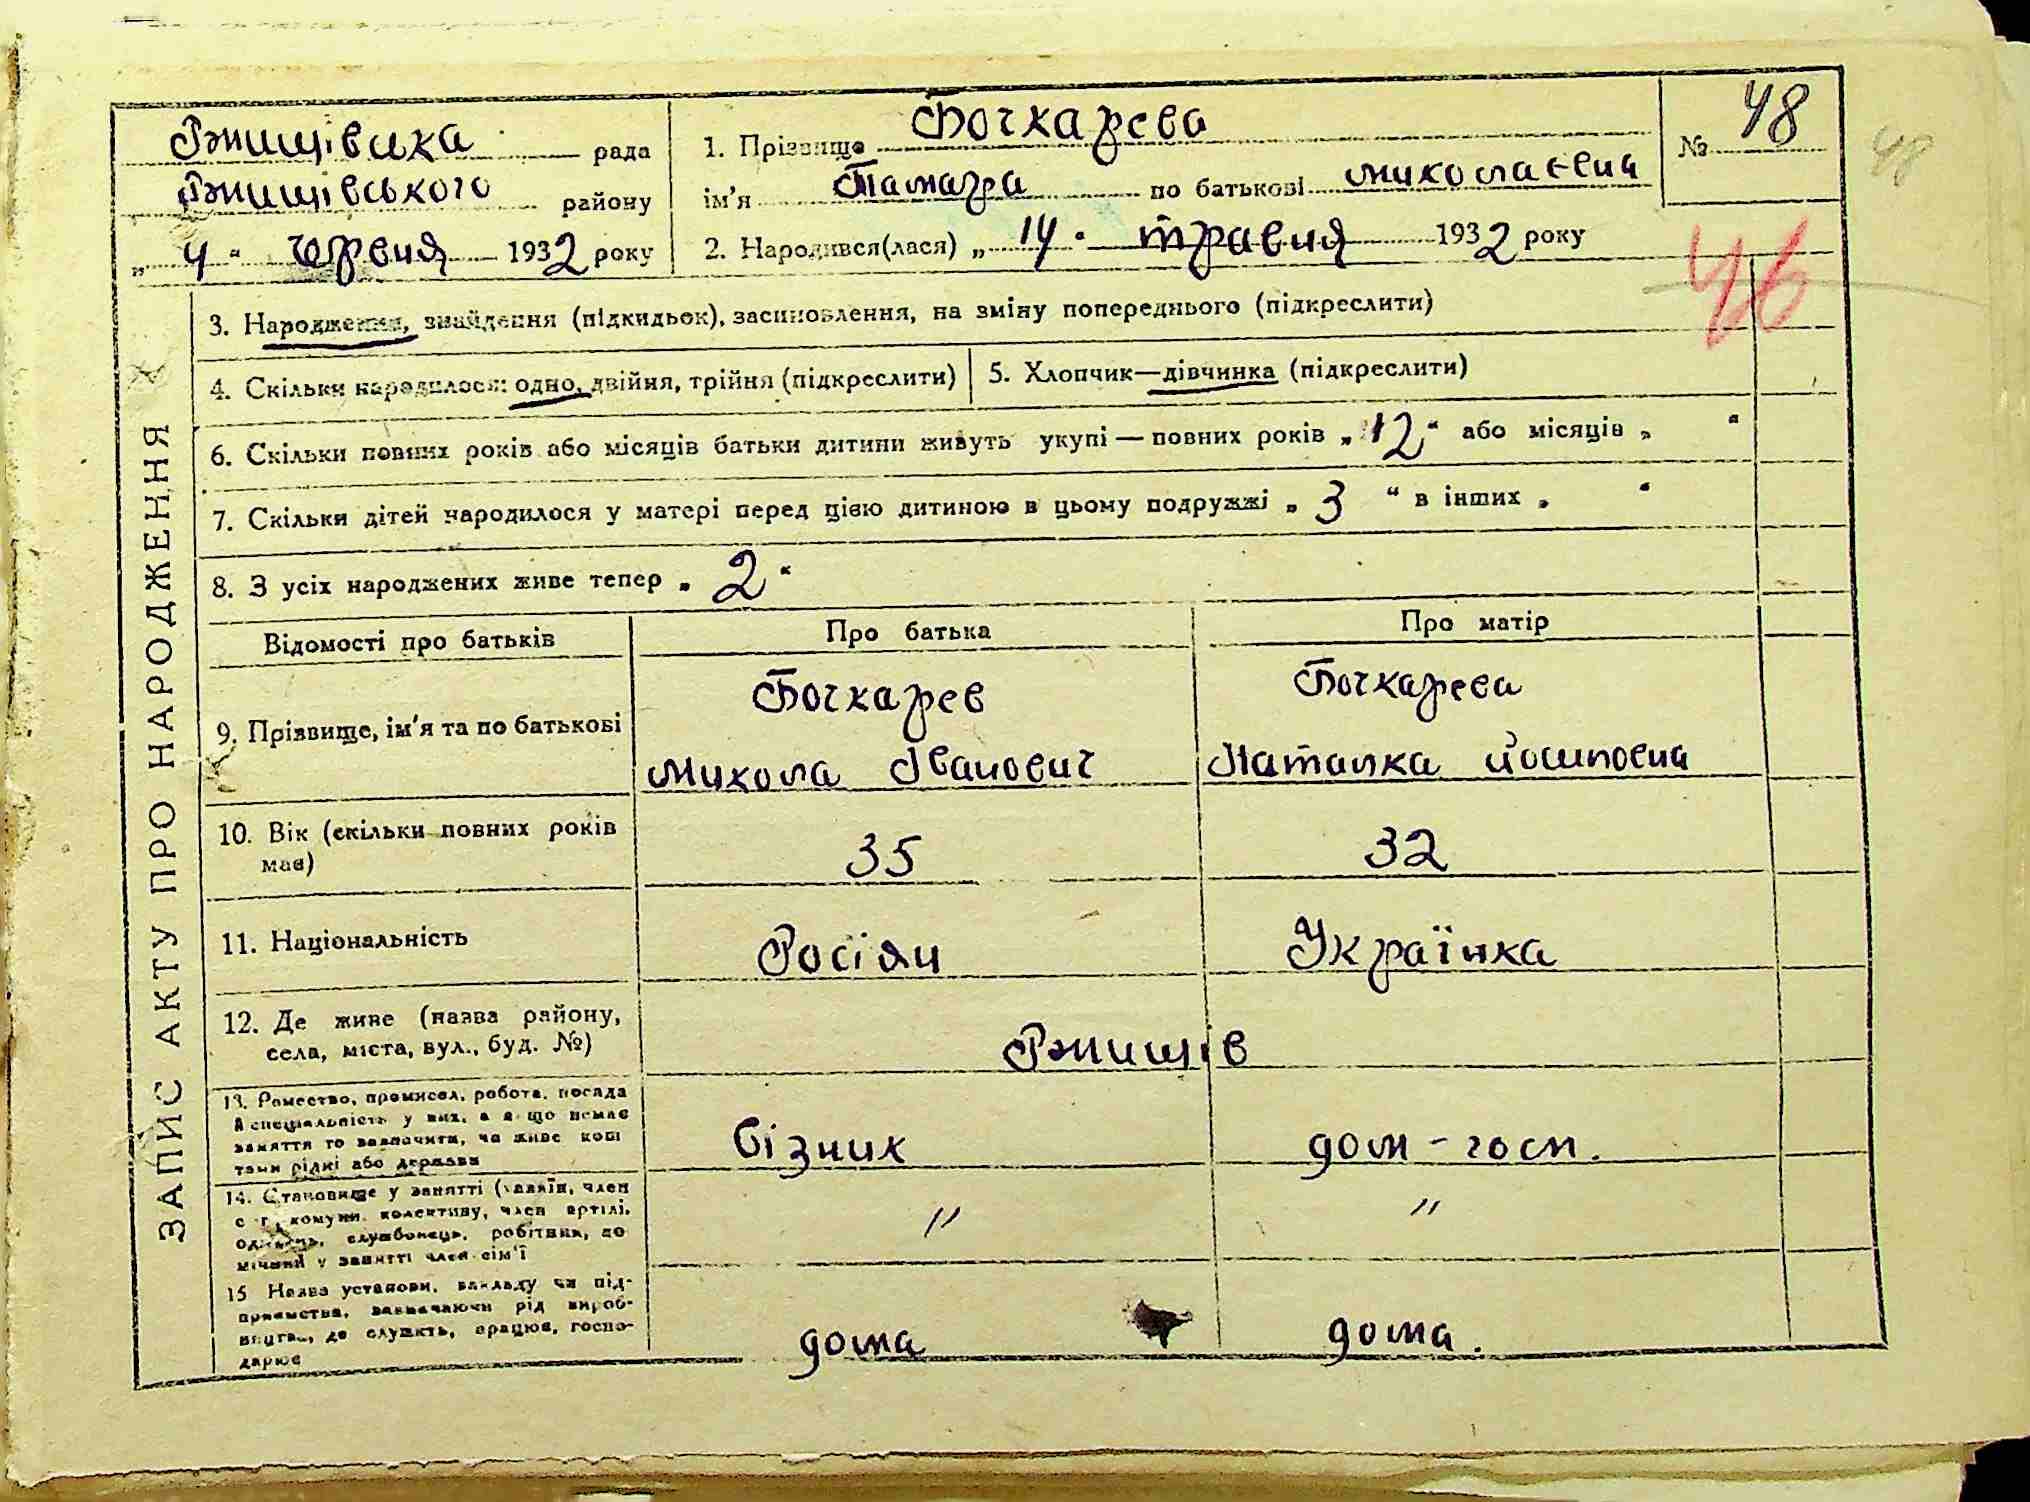 Ржищівська рада
Ржищівського району
„ 4 “ червня 1932 року
1. Прізвище Бочкарева
ім'я Тамара по батькові Миколаєвна
2. Народився(лася) „ 14 “ травня 1932 року
№ 48
48
46
ЗАПИС АКТУ ПРО НАРОДЖЕННЯ
3. Народження, знайдення (підкидьок), засиновлення, на зміну попереднього (підкреслити)
4. Скільки народилося: одно, двійня, трійня (підкреслити)
5. Хлопчик—дівчинка (підкреслити)
6. Скільки повних років або місяців батьки дитини живуть укупі — повних років „ 12 “ або місяців „ “
7. Скільки дітей народилося у матері перед цією дитиною в цьому подружжі „ 3 “ в інших „ “
8. З усіх народжених живе тепер „ 2 “
Відомості про батьків Про батька Про матір
9. Прізвище, ім'я та по батькові
Бочкарев
Микола Іванович
Бочкарева
Наталка Йосиповна
10. Вік (скільки повних років
має)
35 32
11. Національність Росіян Українка
12. Де живе (назва району,
села, міста, вул., буд. №)
Ржищів
13. Ремество, промисел, робота, посада
й спеціяльність у них, а якщо немає
заняття то зазначити, чи живе кошт
тами рідні або держави
візник дом-госп.
14. Становище у занятті (хазяїн, член
с г комуни, колективу, член артілі,
одинець, службовець, робітник, по
мічний у занятті член сім'ї
" "
15 Назва установи, закладу чи під-
приємства, зазначаючи рід вироб-
ництва, де служить, працює, госпо-
дарює
дома дома.